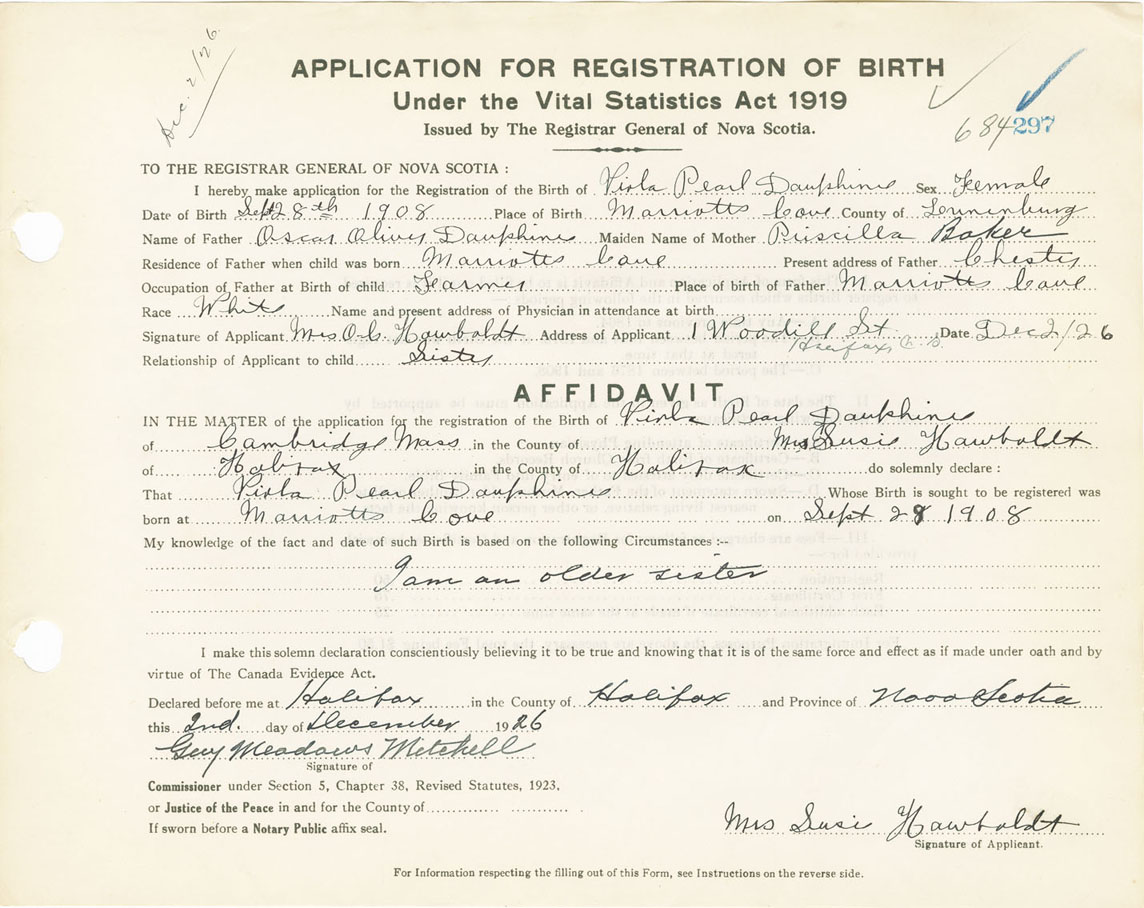 Dec. 2/26.
APPLICATION FOR REGISTRATION OF BIRTH
Under the Vital Statistics Act 1919
Issued by The Registrar General of Nova Scotia.
684 297
TO THE REGISTRAR GENERAL OF NOVA SCOTIA :
I hereby make application for the Registration of the Birth of Viola Pearl Dauphinee Sex Female
Date of Birth Sept 28th 1908 Place of Birth Marriotts Cove County of Lunenburg
Name of Father Oscar Oliver Dauphinee Maiden Name of Mother Priscilla Baker
Residence of Father when child was born Marriotts Cove Present address of Father Chester
Occupation of Father at Birth of child Farmer Place of birth of Father Marriotts Cove
Race White Name and present address of Physician in attendance at birth
Signature of Applicant Mrs O.C. Hawboldt Address of Applicant 1 Woodill St. Date Dec 2/26
Halifax
Relationship of Applicant to child Sister
AFFIDAVIT
IN THE MATTER of the application for the registration of the Birth of Viola Pearl Dauphinee
of Cambridge Mass in the County of Mrs Susie Hawboldt
of Halifax in the County of Halifax do solemnly declare :
That Viola Pearl Dauphinee Whose Birth is sought to be registered was
born at Marriotts Cove on Sept 28 1908
My knowledge of the fact and date of such Birth is based on the following Circumstances :--
I am an older sister
I make this solemn declaration conscientiously believing it to be true and knowing that it is of the same force and effect as if made under oath and by
virtue of The Canada Evidence Act.
Declared before me at Halifax in the County of Halifax and Province of Nova Scotia
this 2nd. day of December 1926
Guy Meadows Mitchell
Signature of
Commissioner under Section 5, Chapter 38, Revised Statutes, 1923,
or Justice of the Peace in and for the County of
If sworn before a Notary Public affix seal.
Mrs Susie Hawboldt
Signature of Applicant.
For Information respecting the filling out of this Form, see Instructions on the reverse side.